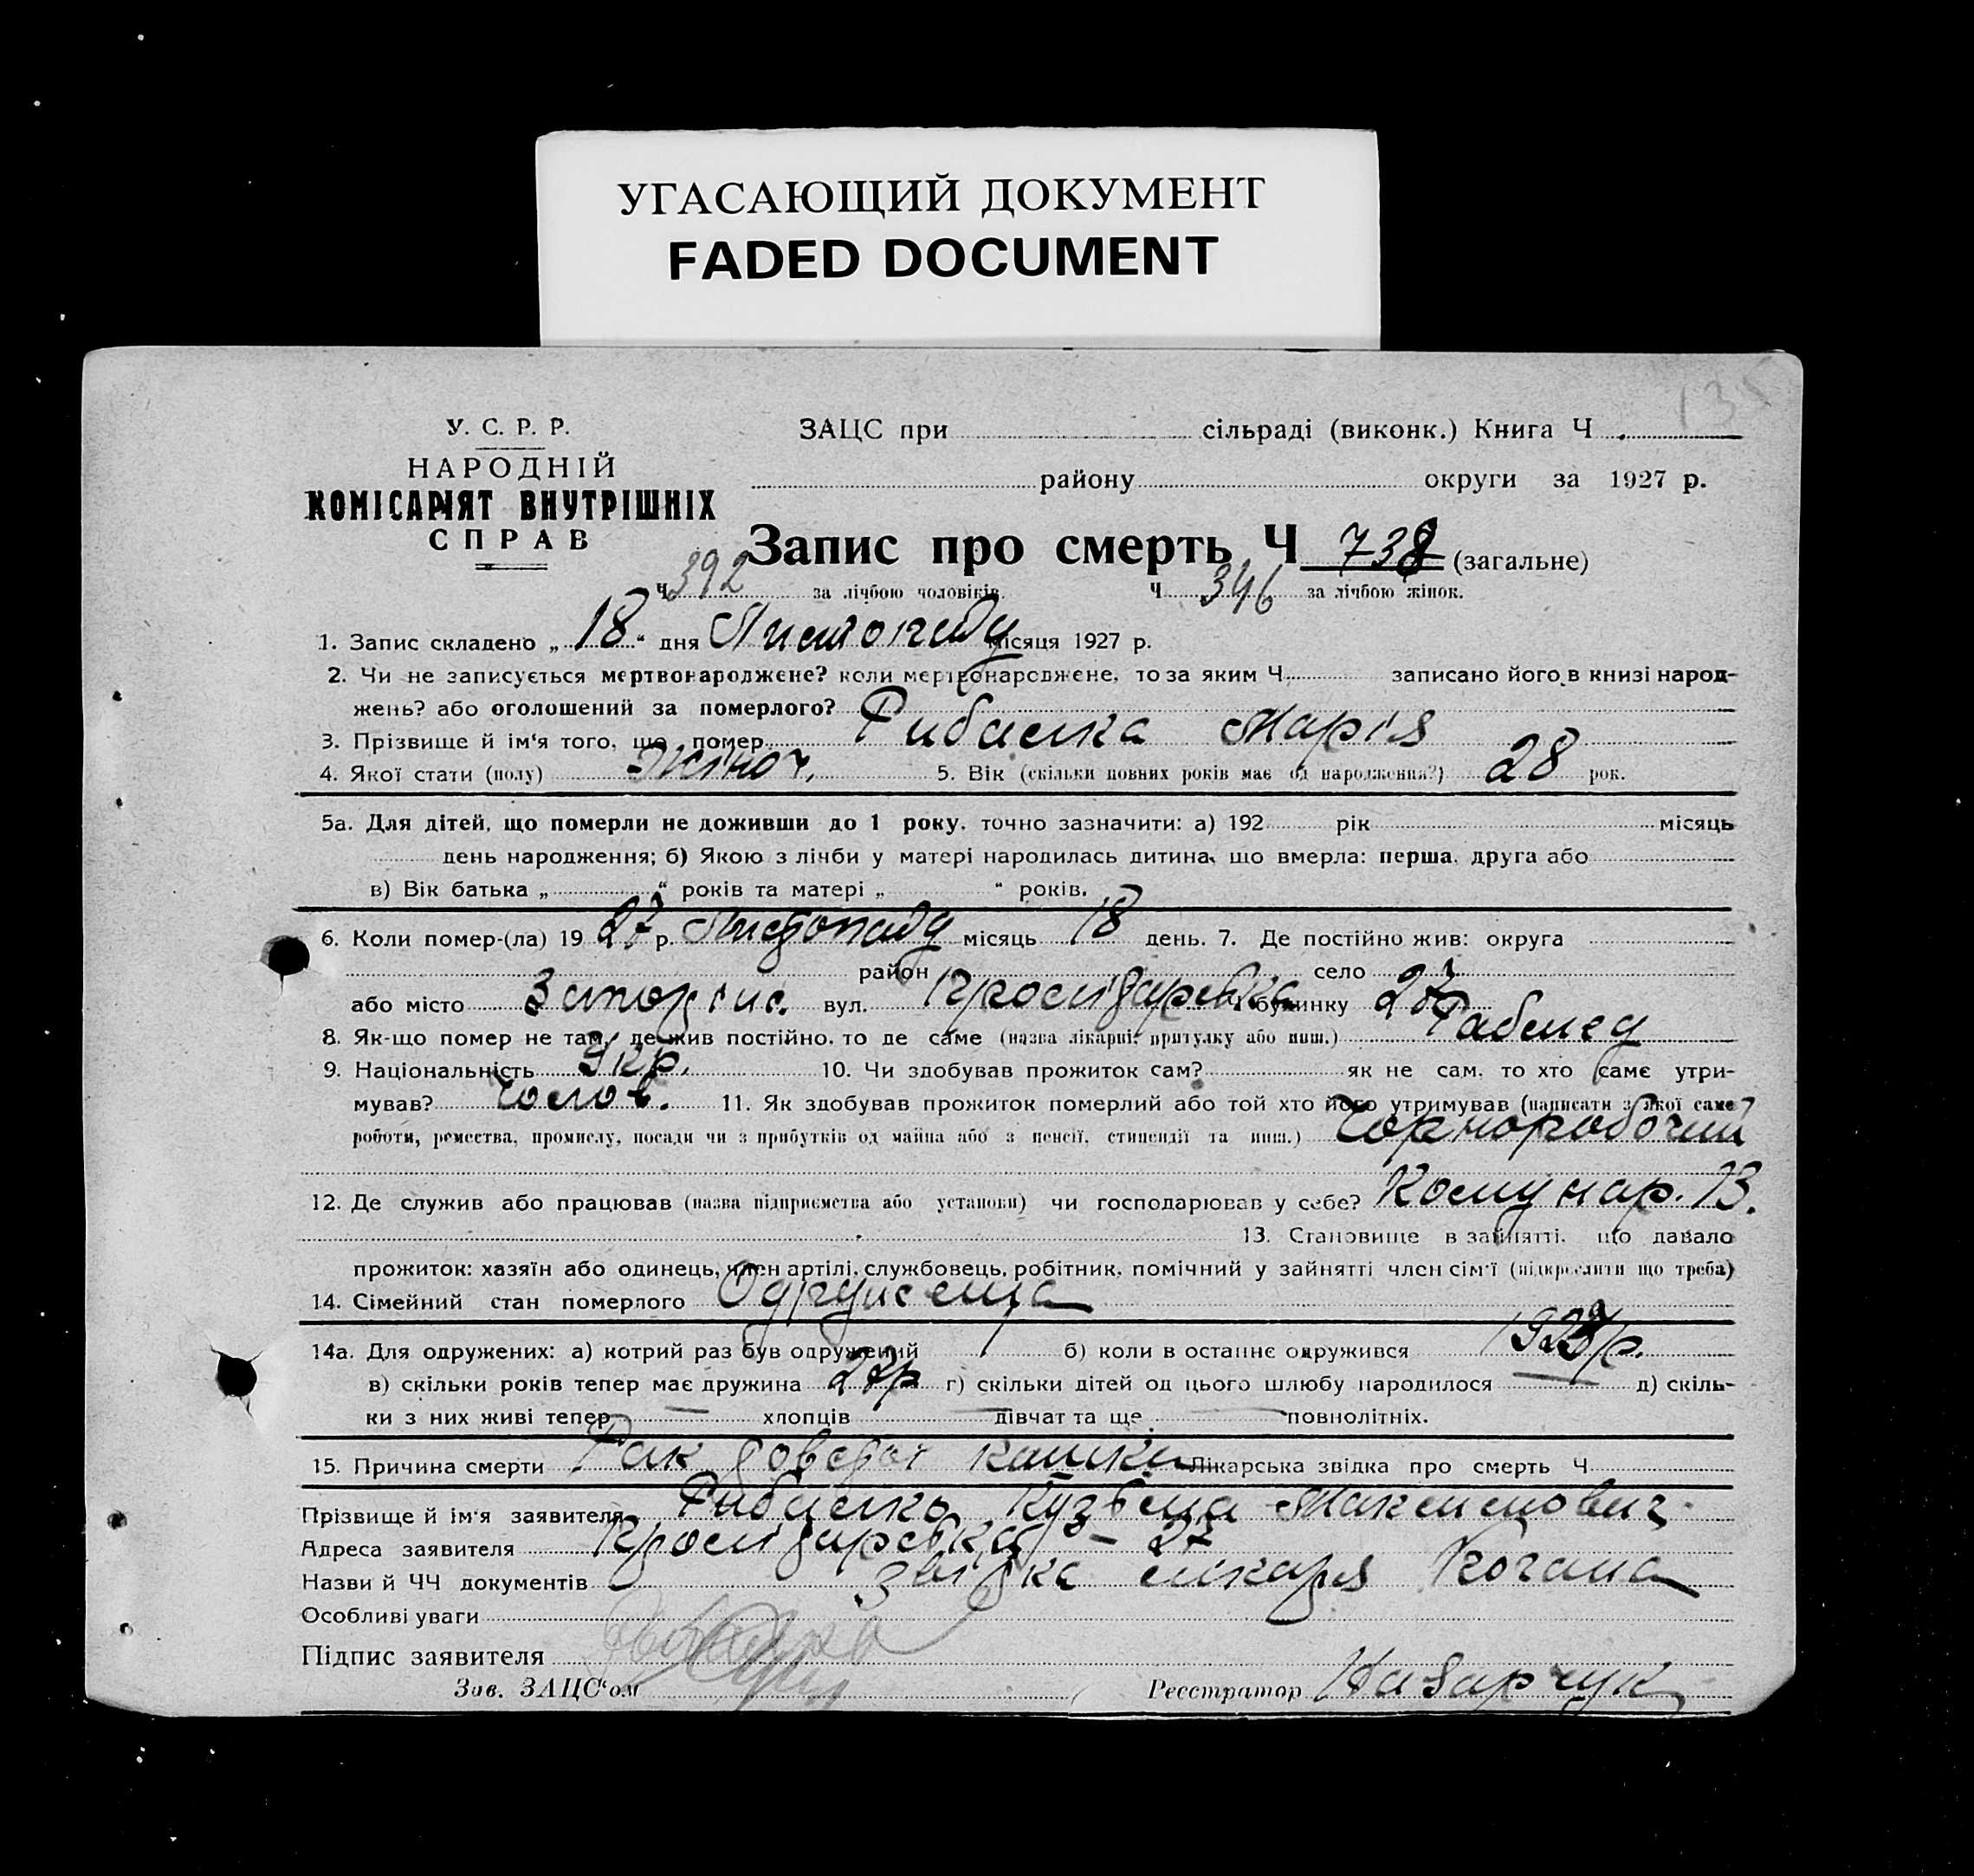 УГАСАЮЩИЙ ДОКУМЕНТ
FADED DOCUMENT
135
У. С. Р. Р.
НАРОДНІЙ
КОМІСАРІЯТ ВНУТРІШНІХ
СПРАВ
ЗАЦС при сільраді (виконк.) Книга Ч
району округи за 1927 р.
Запис про смерть Ч 738 (загальне)
Ч 392 за лічбою чоловіків. Ч 346 за лічбою жінок.
1. Запис складено „ 18 “ дня Листопаду місяця 1927 р.
2. Чи не записується мертвонароджене? коли мертвонароджене, то за яким Ч. записано його в книзі народ-
жень? або оголошений за померлого?
3. Прізвище й ім'я того, що помер Рибалка Марія
4. Якої стати (полу) Жіноч. 5. Вік (скільки повних років має од народження?) 28 рок.
5а. Для дітей, що померли не доживши до 1 року, точно зазначити: а) 192 рік місяць
день народження; б) Якою з лічби у матері народилась дитина, що вмерла: перша, друга або
в) Вік батька „ “ років та матері „ “ років.
6. Коли помер-(ла) 19 27 р. Листопаду місяць 18 день. 7. Де постійно жив: округа
район село
або місто вул. будинку 27
8. Як-що помер не там, де жив постійно, то де саме (назва лікарні, притулку або инш.)
9. Національність Укр. 10. Чи здобував прожиток сам? як не сам, то хто саме утри-
мував? Чолов. 11. Як здобував прожиток померлий або той хто його утримував (написати з якої саме
роботи, ремества, промислу, посади чи з прибутків од майна або з пенсії, стипендії та инш.) Чорноробочий
12. Де служив або працював (назва підприємства або установи) чи господарював у себе? Комунар. В.
13. Становище в зайнятті, що давало
прожиток: хазяїн або одинець, член артілі, службовець, робітник, помічний у зайнятті член сім'ї (підкреслити що треба)
14. Сімейний стан померлого Одружена
14а. Для одружених: а) котрий раз був одружений 1 б) коли в останнє одружився р.
в) скільки років тепер має дружина 27 р г) скільки дітей од цього шлюбу народилося — д) скіль-
ки з них живі тепер — хлопців — дівчат та ще — повнолітніх.
15. Причина смерти Рак кишки Лікарська звідка про смерть Ч
Прізвище й ім'я заявителя Рибалко Кузьма Максимович
Адреса заявителя – 27
Назви й ЧЧ документів Звідка лікаря Когана
Особливі уваги
Підпис заявителя
Зав. ЗАЦС‘ом Реєстратор Назарчук